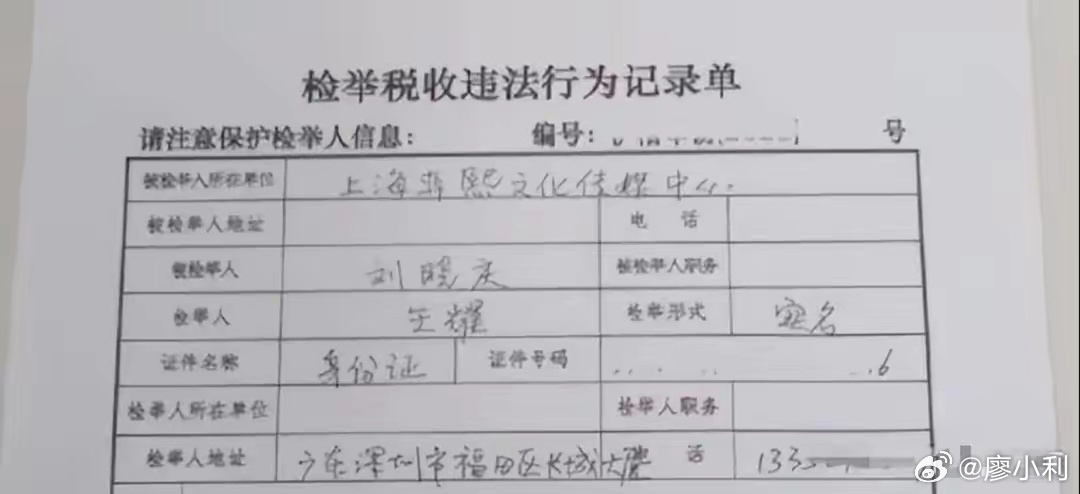 检举税收违法行为记录单
请注意保护检举人信息: 编号: 号
被检举人所在单位 上海 熙文化传媒中心.
被检举人地址 电 话
被检举人 刘晓庆 被检举人职务
检举人 王耀 检举形式 实名
证件名称 身份证 证件号码 6
检举人所在单位 检举人职务
检举人地址 广东深圳市福田区长城大厦 话 133
@廖小利